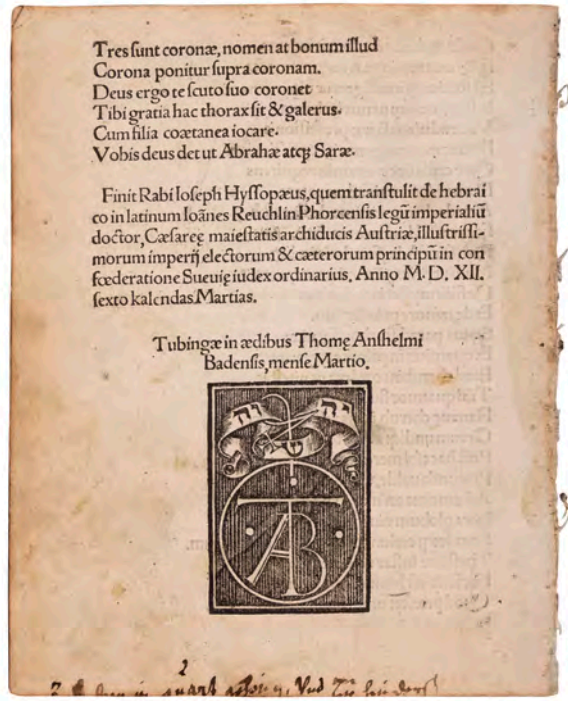 Tres ſunt coronæ, nomen at bonum illud
Corona ponitur ſupra coronam.
Deus ergo te ſcuto ſuo coronet
Tibi gratia hac thorax ſit & galerus.
Cum filia coætanea iocare.
Vobis deus det ut Abrahæ atqꝫ Saræ.
Finit Rabi Ioſeph Hyſſopæus, quem tranſtulit de hebrai
co in latinum Ioānes Reuchlin Phorcenſis legū imperialiū
doctor, Cæſareę maieſtatis archiducis Auſtriæ, illuſtriſſi-
morum imperij electorum & cæterorum principū in con
fœderatione Sueuię iudex ordinarius. Anno M. D. XII.
ſexto kalendas Martias.
Tubingæ in ædibus Thomę Anſhelmi
Badenſis, menſe Martio.
יה ש וה
TAB
2